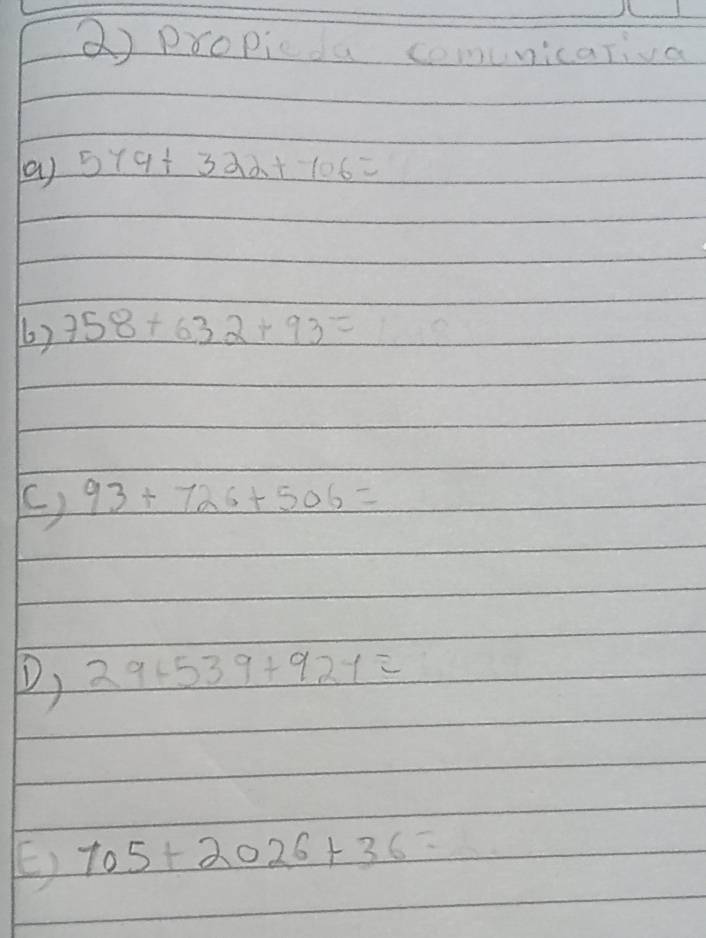 2) Propieda comunicativa
a) 579+ 322+ 706=
b) 758+632+93=
C) 93+726+506=
D) 29+539+927=
E) 705+2026+36=